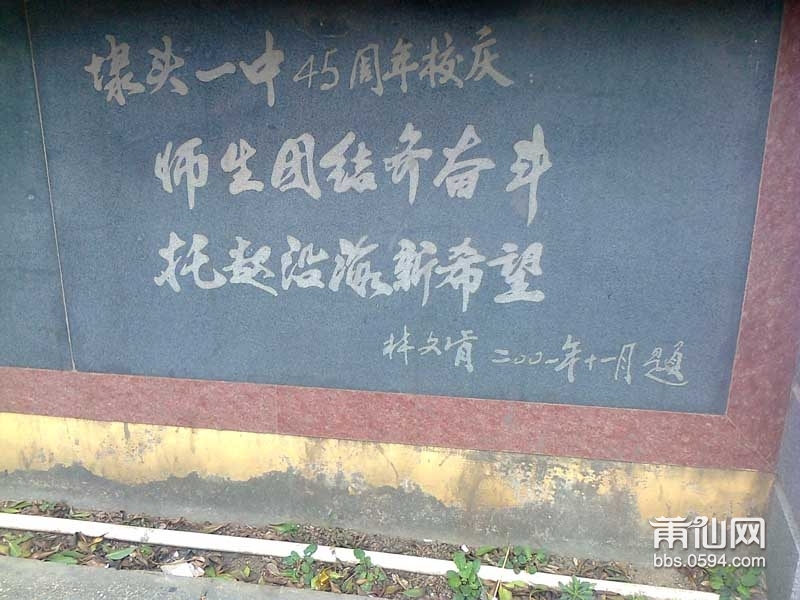 埭头一中45周年校庆
师生团结齐奋斗
托起沿海新希望
林文肯 二〇〇一年十一月题
莆仙网
bbs.0594.com